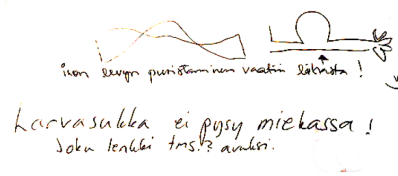 ison levyn puristaminen vaatii
Karvasukka ei pysy miekassa!
Joku lenkki tms.? avuksi.